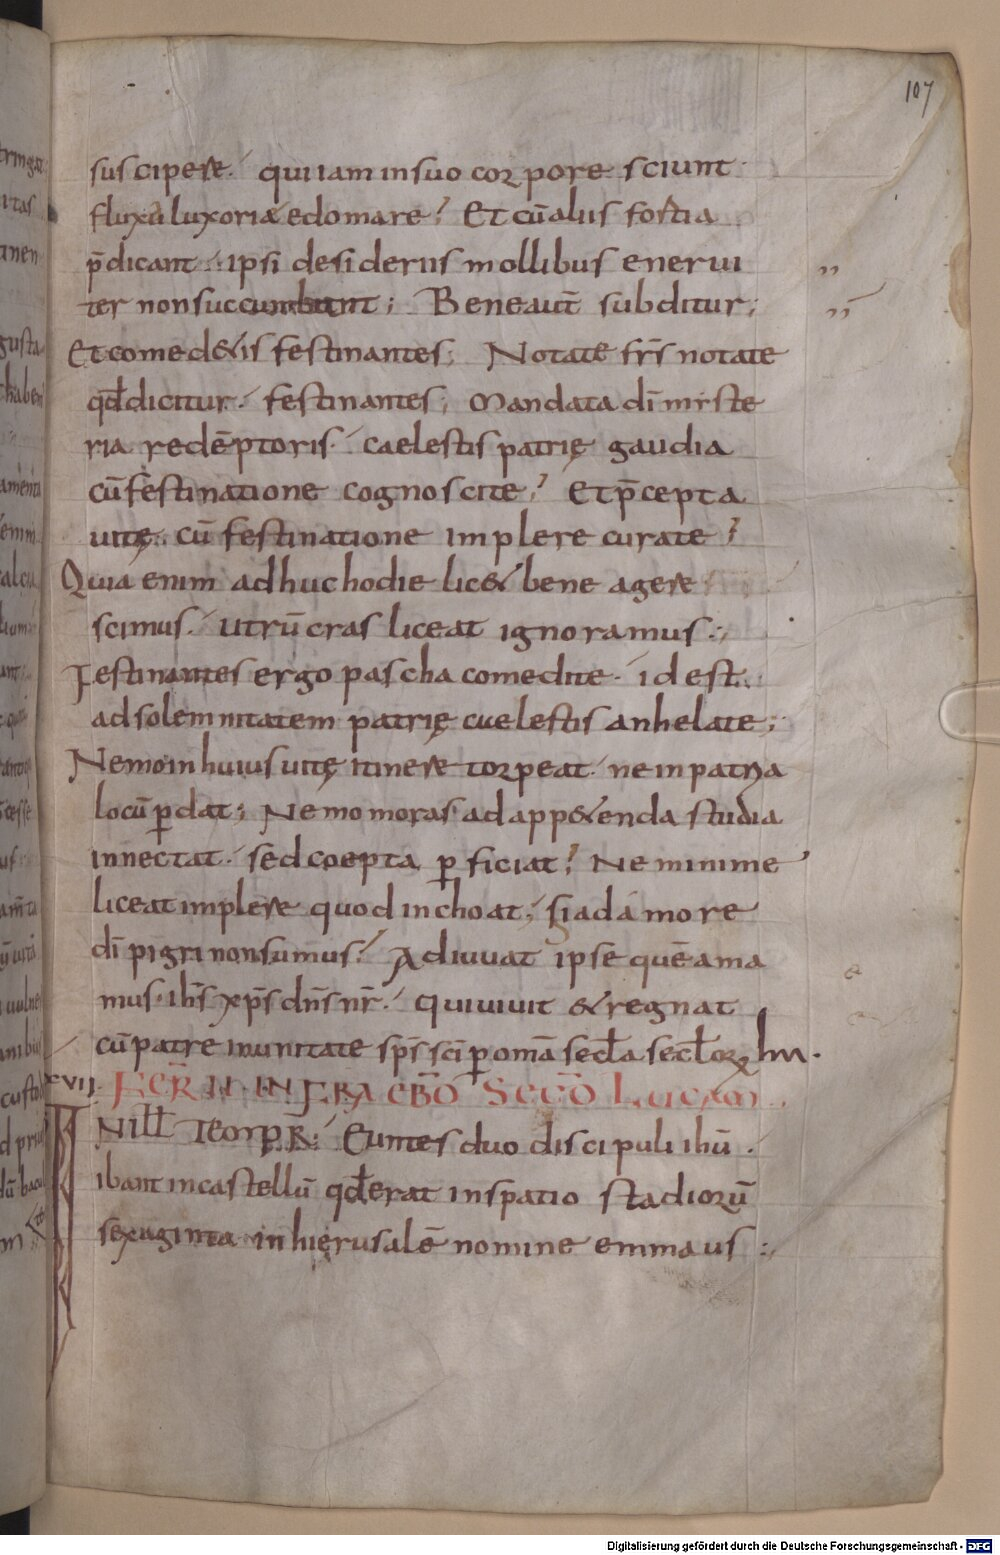 107
suscipere. qui iam in suo corpore sciunt
fluxū luxoriae edomare? Et cū aliis fortia
p̄dicant. ipsi desideriis mollibus enerui
ter non succumbant; Bene aut̄ subditur;
Et comedetis festinantes; Notate fr̄s notate
qđ dicitur. festinantes; Mandata dī miste
ria redēptoris. caelestis patrię gaudia
cū festinatione cognoscite? Et p̄cepta
uitę cū festinatione implere curate?
Quia enim adhuc hodie licet bene agere
scimus. utrū cras liceat ignoramus;
Festinantes ergo pascha comedite. id est
ad solemnitatem patrię caelestis anhelate;
Nemo in huius uitę itinere torpeat. ne in patria
locū ꝑdat; Nemo moras ad appetenda studia
innectat. sed coepta ꝑficiat? Ne minime
liceat implere quod inchoat; si ad amore
dī pigri non sumus? Adiuuat ipse quē ama
mus. ih̄s xp̄s dn̄s nr̄. qui uiuit & regnat
cū patre in unitate sp̄s sc̄i ꝑ omā secl̄a secl̄oꝝ am̄.
XVII. FER̄ II INFRA EBD̄O SECD̄O LUCAM
IN ILL̄ TEMPR̄. Euntes duo discipuli ihū.
ibant in castellū qđ erat in spatio stadiorū
sexaginta in hierusalē nomine emmaus;
Digitalisierung gefördert durch die Deutsche Forschungsgemeinschaft - DFG